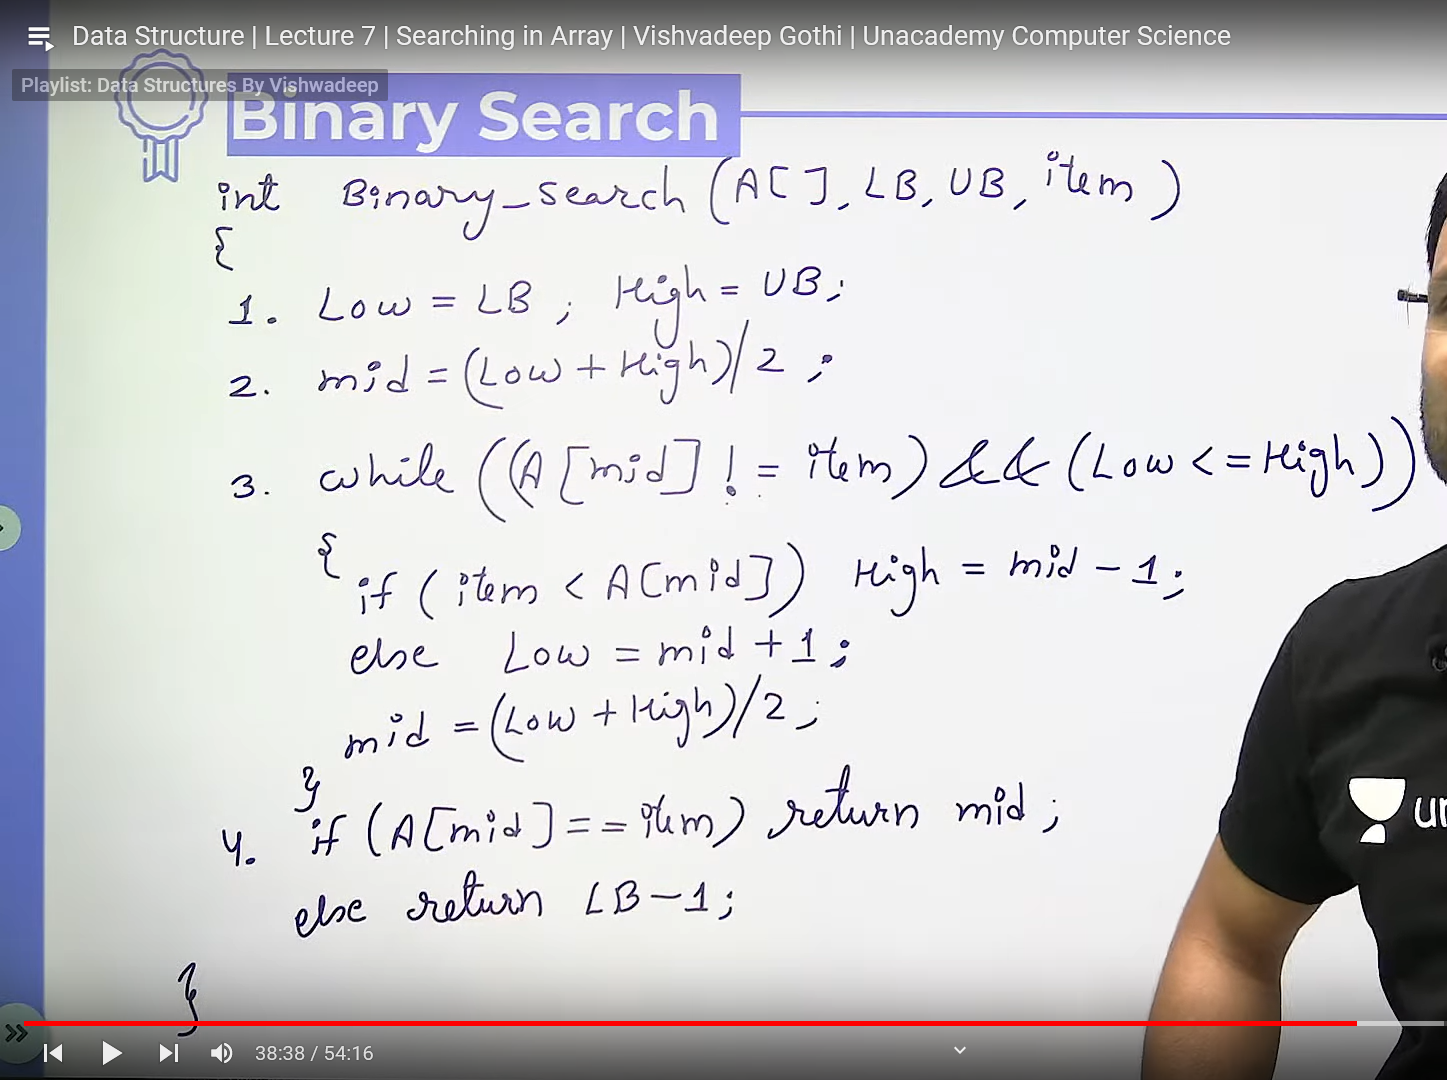 Data Structure | Lecture 7 | Searching in Array | Vishvadeep Gothi | Unacademy Computer Science
Playlist: Data Structures By Vishwadeep
Binary Search
int Binary_search (A[], LB, UB, item)
{
1. Low = LB ; High = UB;
2. mid = (Low + High)/2 ;
3. while ((A[mid] != item) && (Low <= High))
{
if (item < A[mid]) High = mid - 1;
else Low = mid + 1;
mid = (Low + High)/2;
}
4. if (A[mid] == item) return mid;
else return LB-1;
}
un
38:38 / 54:16